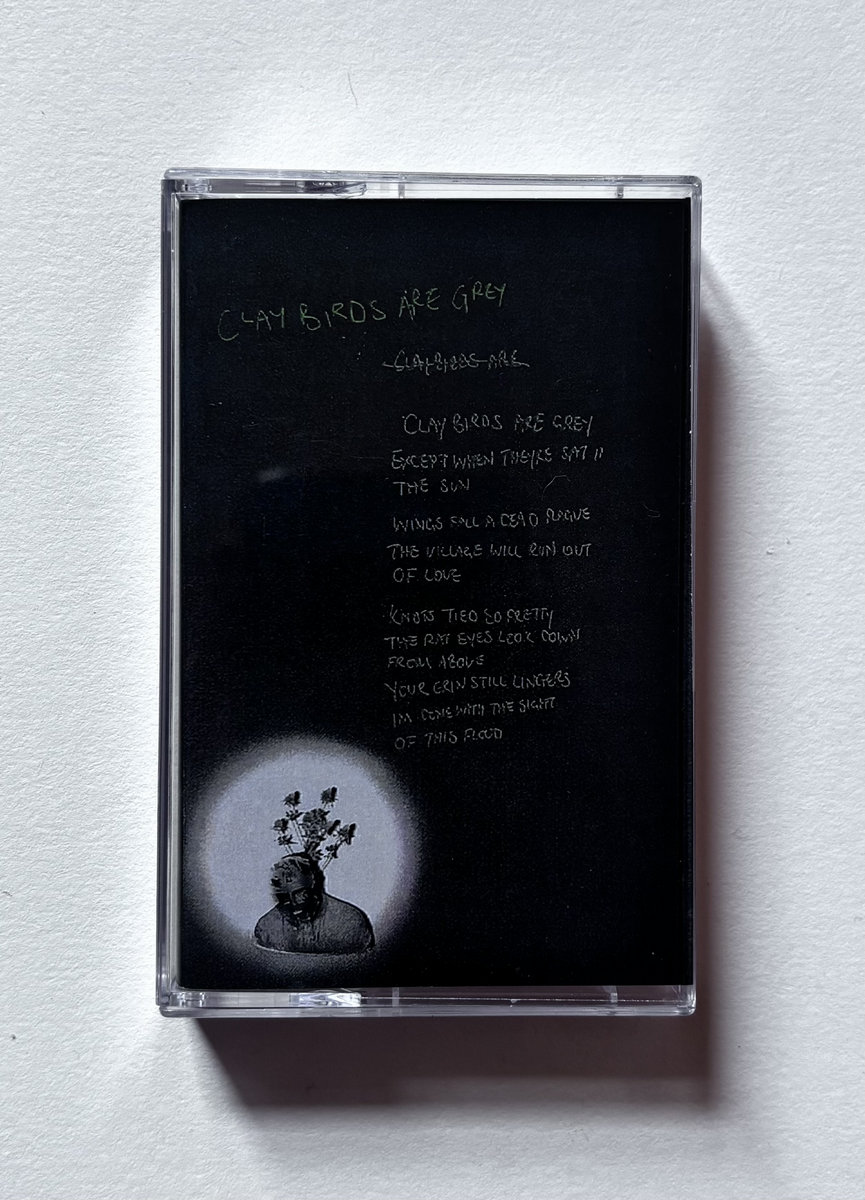 CLAY BIRDS ARE GREY
CLAY BIRDS ARE
CLAY BIRDS ARE GREY
EXCEPT WHEN THEY'RE SAT IN
THE SUN
WINGS FALL A DEAD PLAGUE
THE VILLAGE WILL RUN OUT
OF LOVE
KNOTS TIED SO PRETTY
THE RAT EYES LOOK DOWN
FROM ABOVE
YOUR GRIN STILL LINGERS
IM DONE WITH THE SIGHT
OF THIS FLOOD